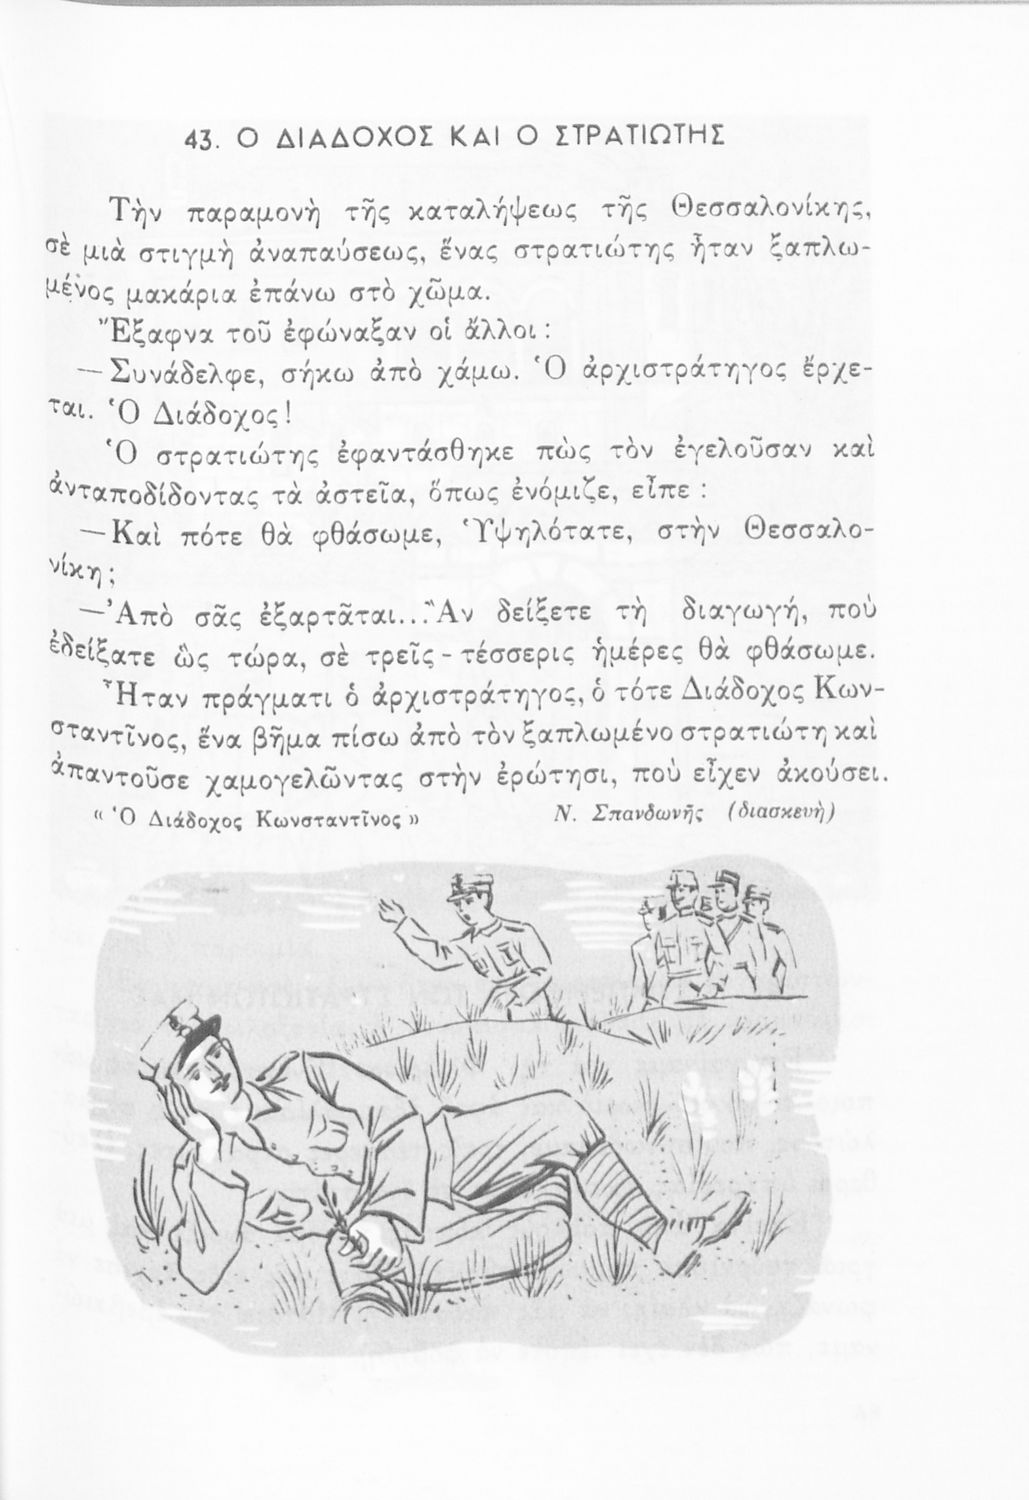 43. Ο ΔΙΑΔΟΧΟΣ ΚΑΙ Ο ΣΤΡΑΤΙΩΤΗΣ
Τὴν παραμονὴ τῆς καταλήψεως τῆς Θεσσαλονίκης,
σὲ μιὰ στιγμὴ ἀναπαύσεως, ἕνας στρατιώτης ἦταν ξαπλω-
μένος μακάρια ἐπάνω στὸ χῶμα.
Ἔξαφνα τοῦ ἐφώναξαν οἱ ἄλλοι :
— Συνάδελφε, σήκω ἀπὸ χάμω. Ὁ ἀρχιστράτηγος ἔρχε-
ται. Ὁ Διάδοχος!
Ὁ στρατιώτης ἐφαντάσθηκε πὼς τὸν ἐγελοῦσαν καὶ
ἀνταποδίδοντας τὰ ἀστεῖα, ὅπως ἐνόμιζε, εἶπε :
— Καὶ πότε θὰ φθάσωμε, Ὑψηλότατε, στὴν Θεσσαλο-
νίκη ;
— Ἀπὸ σᾶς ἐξαρτᾶται... Ἂν δείξετε τὴ διαγωγή, ποὺ
ἐδείξατε ὣς τώρα, σὲ τρεῖς - τέσσερις ἡμέρες θὰ φθάσωμε.
Ἦταν πράγματι ὁ ἀρχιστράτηγος, ὁ τότε Διάδοχος Κων-
σταντῖνος, ἕνα βῆμα πίσω ἀπὸ τὸν ξαπλωμένο στρατιώτη καὶ
ἀπαντοῦσε χαμογελῶντας στὴν ἐρώτησι, ποὺ εἶχεν ἀκούσει.
« Ὁ Διάδοχος Κωνσταντῖνος » Ν. Σπανδωνῆς (διασκευὴ)